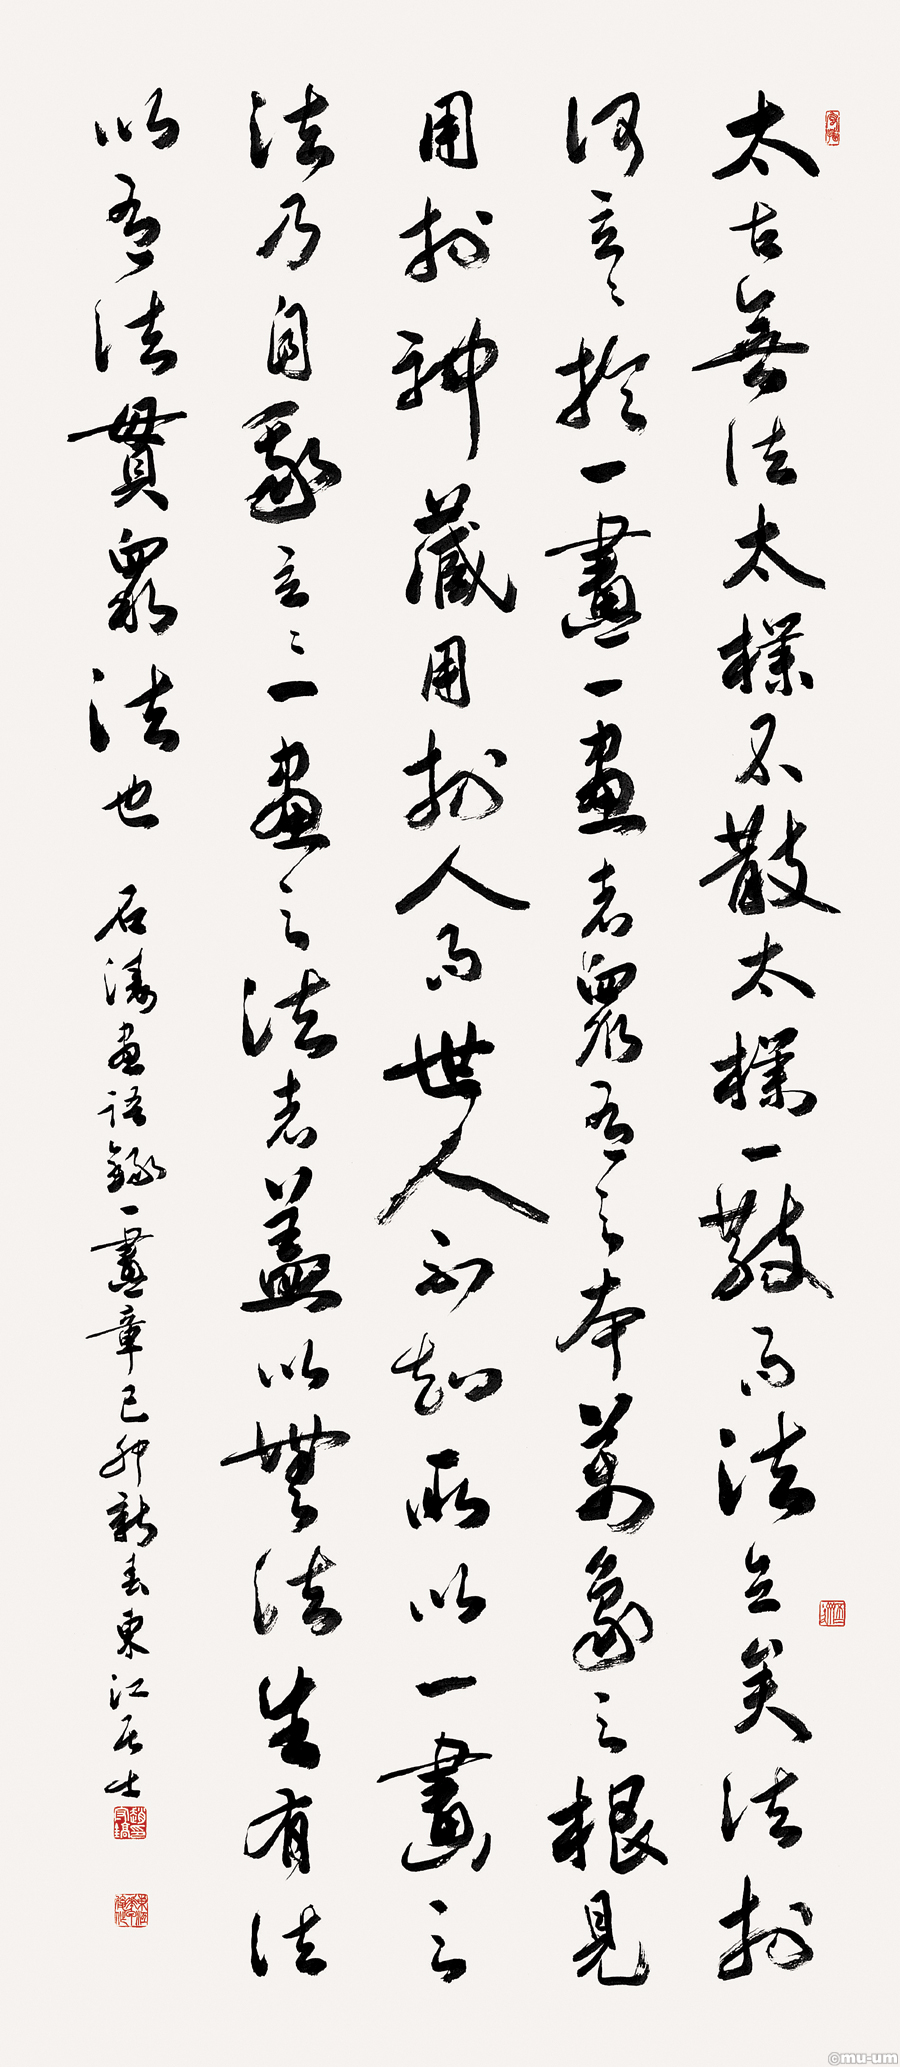 太古無法太樸不散太樸一散而法立矣法於
何立々於一畫一畫者衆有之本萬象之根見
用於神藏用於人而世人不知所以一畫之
法乃自我立々一畫之法者蓋以無法生有法
以有法貫衆法也 石濤畫語錄一畫章己卯新春東江居士
©mu-um